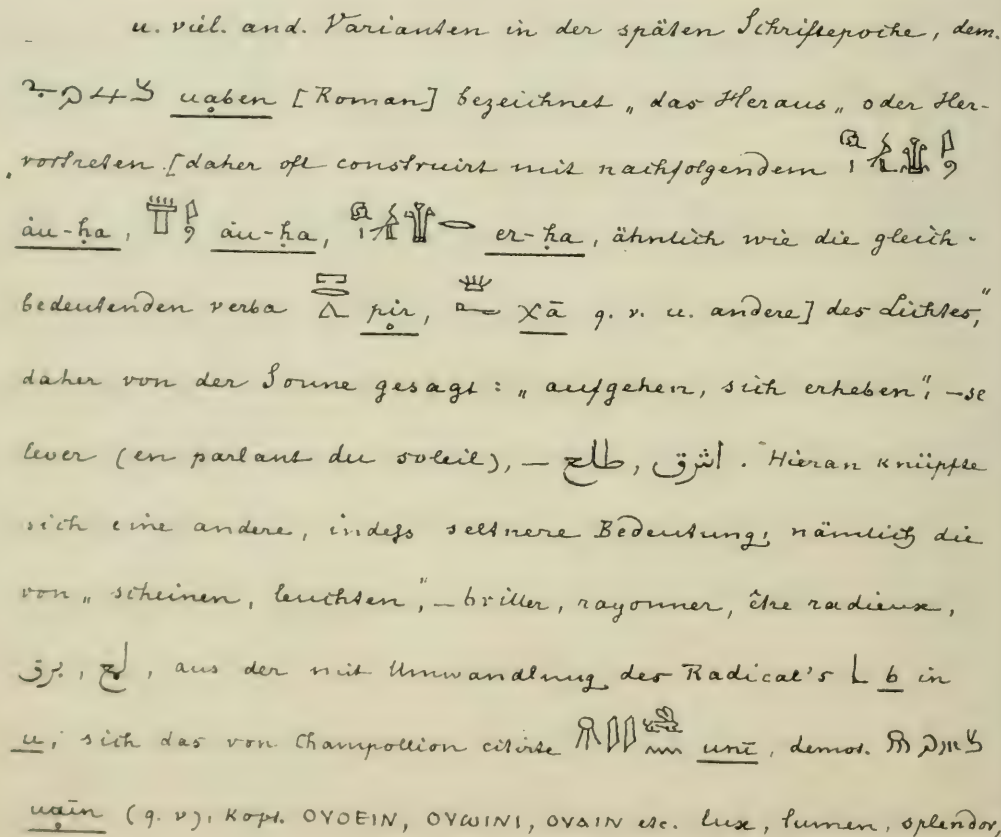 u. viel. and. Varianten in der späten Schriftepoche, dem.
uaben [Roman] bezeichnet „das Heraus„ oder Her-
vortreten [daher oft construirt mit nachfolgendem
àu-ḥa, àu-ḥa, er-ḥa, ähnlich wie die gleich-
bedeutenden verba pir, χā q. v. u. andere] des Lichtes,"
daher von der Sonne gesagt: „aufgehen, sich erheben", — se
lever (en parlant du soleil), — طلع, اشرق. Hieran knüpfte
sich eine andere, indeß seltnere Bedeutung, nämlich die
von „scheinen, leuchten", — briller, rayonner, être radieux,
برق, لمع, aus der mit Umwandlung des Radical's b in
u, sich das von Champollion citirte unī, demot.
uaīn (q. v), kopt. ΟΥΟΕΙΝ, ΟΥⲰΙΝΙ, ΟΥΑΙΝ etc. lux, lumen, splendor,